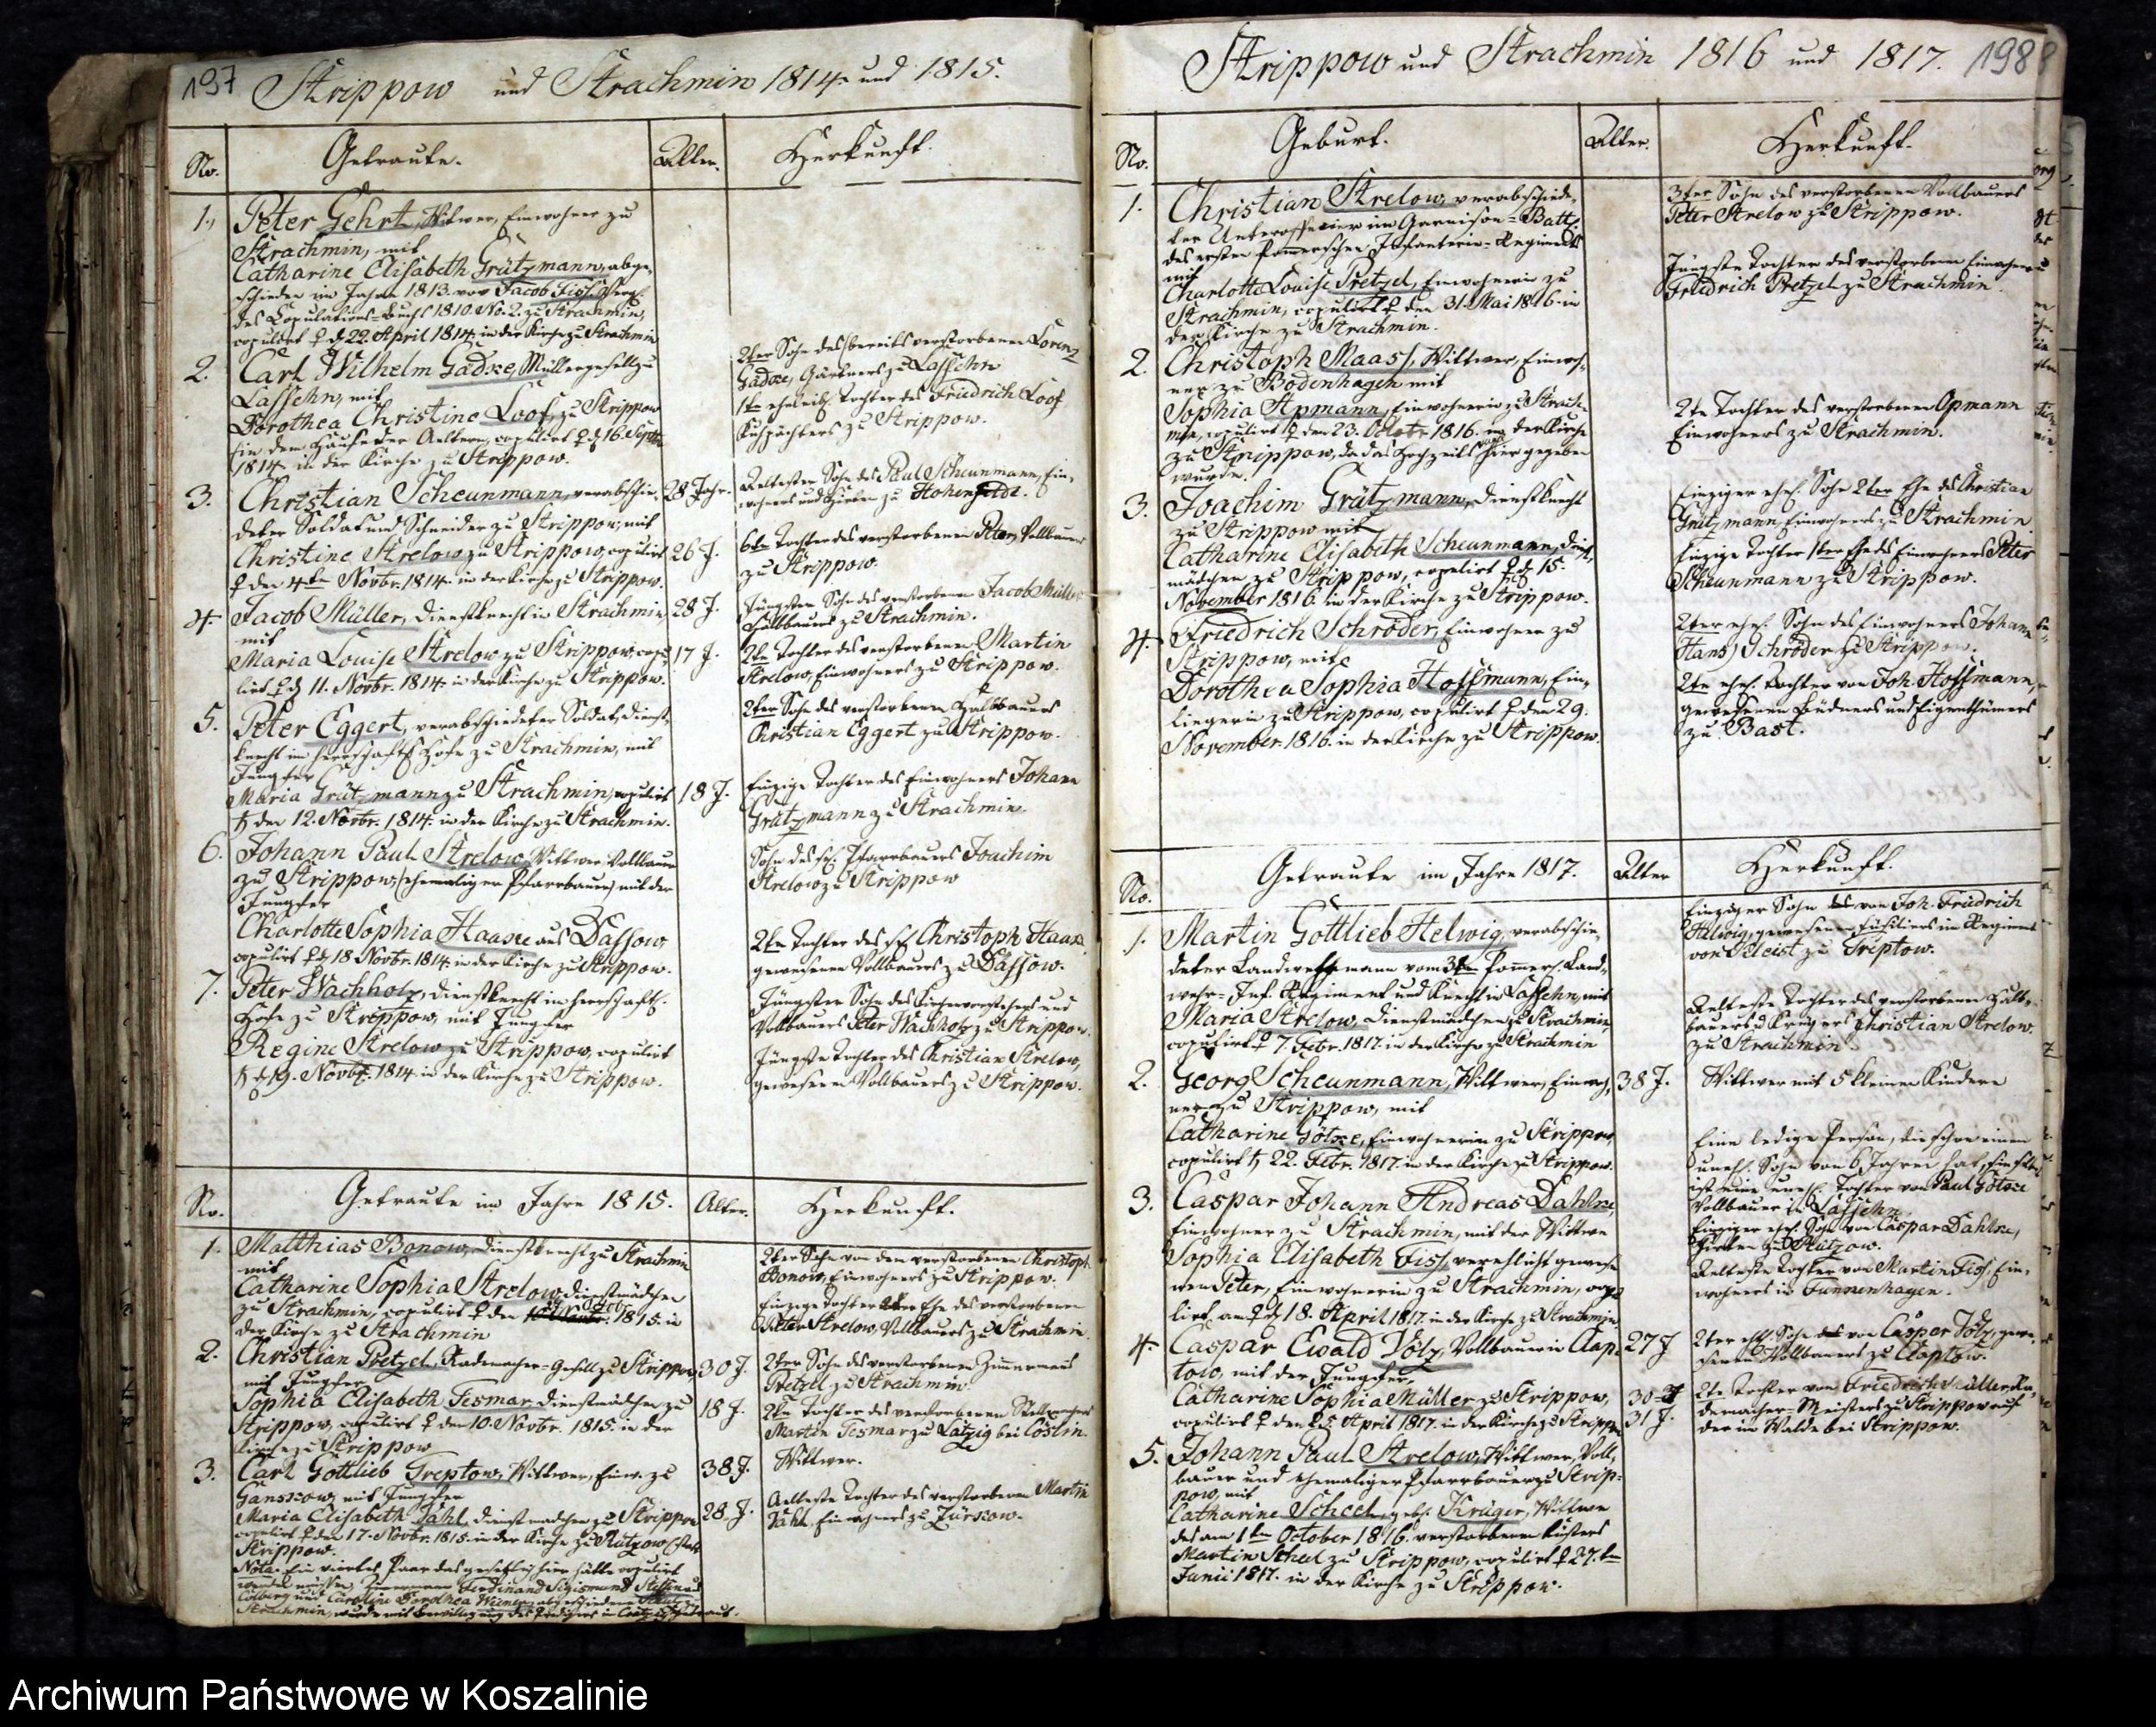 197
Strippow und Strachmin 1814. und 1815.
No.
Getraute.
Alter.
Herkunft.
1.
Peter Gehrt, Witwer, Einwohner zu
Strachmin, mit
Catharine Elisabeth Grützmann, abge-
schieden im Jahre 1813. von Jacob
des Copulations-Buchs 1810. No. 2. zu Strachmin,
copulirt d. 22. April 1814. in der Kirche zu Strachmin
2.
Carl Wilhelm Gadze, Müllergesell zu
Lassehn, mit
Dorothea Christine Loof, zu Strippow
in dem Hause der Aeltern, copulirt d. 16. Septbr.
1814. in der Kirche zu Strippow.
2ter Sohn des bereits verstorbenen Lorenz
Gadze, Gärtners zu Lassehn
1te eheleibl. Tochter des Friedrich Loof
zu Strippow.
3.
Christian Scheunmann, verabschie-
deter Soldat und Schneider zu Strippow, mit
Christine Strelow zu Strippow, copulirt
den 4ten Novbr. 1814. in der Kirche zu Strippow.
28 Jahr.
26 J.
Aeltester Sohn des Paul Scheunmann, Ein-
wohners und Hirten zu Hohenfeldt.
6te Tochter des verstorbenen Peter, Vollbauer
zu Strippow.
4.
Jacob Müller, Dienstknecht in Strachmin
mit
Maria Louise Strelow zu Strippow, copu-
lirt d. 11. Novbr. 1814. in der Kirche zu Strippow.
28 J.
17 J.
Jüngster Sohn des verstorbenen Jacob Müller
Halbbauers zu Strachmin.
2te Tochter des verstorbenen Martin
Strelow, Einwohners zu Strippow.
5.
Peter Eggert, verabschiedeter Soldat, Dienst-
knecht im herrschaftl. Hofe zu Strachmin, mit
Jungfer
Maria Grützmann zu Strachmin, copulirt
den 12. Novbr. 1814. in der Kirche zu Strachmin.
18 J.
2ter Sohn des verstorbenen Halbbauers
Christian Eggert zu Strippow.
Einzige Tochter des Einwohners Johann
Grützmann zu Strachmin.
6.
Johann Paul Strelow, Wittwer, Vollbauer
zu Strippow, (ehemaliger Pfarrbauer) mit der
Jungfer
Charlotte Sophia Haase aus Dassow
copulirt d. 18 Novbr. 1814. in der Kirche zu Strippow.
Sohn des sel. Pfarrbauers Joachim
Strelow zu Strippow
2te Tochter des sel. Christoph Haase
gewesenen Vollbauers zu Dassow.
7.
Peter Wachholz, Dienstknecht im herrschaftl.
Hofe zu Strippow, mit Jungfer
Regine Strelow zu Strippow, copulirt
d. 19. Novbr. 1814. in der Kirche zu Strippow.
Jüngster Sohn des Kirchenvorstehers und
Vollbauers Peter Wachholz zu Strippow.
Jüngste Tochter des Christian Strelow,
gewesenen Vollbauers zu Strippow.
No.
Getraute im Jahre 1815.
Alter.
Herkunft.
1.
Matthias Bonow, Dienstknecht zu Strachmin
mit
Catharine Sophia Strelow, Dienstmädchen
zu Strachmin, copulirt den 1815. in
der Kirche zu Strachmin
2ter Sohn von dem verstorbenen Christoph
Bonow, Einwohners zu Strippow.
Einzige Tochter 2ter Ehe des verstorbenen
Peter Strelow, Vollbauers zu Strachmin.
2.
Christian Pretzel, Rademacher-Gesell zu Strippow,
mit Jungfer
Sophia Elisabeth Tesmar, Dienstmädchen zu
Strippow, copulirt den 10. Novbr. 1815. in der
Kirche zu Strippow
30 J.
18 J.
2ter Sohn des verstorbenen Zimmermanns
Pretzel zu Strachmin.
2te Tochter des verstorbenen Stellmachers
Martin Tesmar zu Latzig bei Cöslin.
3.
Carl Gottlieb Treptow, Wittwer, Einw. zu
Ganskow, mit Jungfer
Maria Elisabeth Vahl, Dienstmädchen zu Strippow
copulirt den 17. Novbr. 1815. in der Kirche zu Rützow (statt
Strippow.
38 J.
28. J.
Wittwer.
Aelteste Tochter des verstorbenen Martin
Vahl, Einwohners zu Zürkow.
Nota. Ein viertes Paar das hier hätte copulirt
werden müssen, Ferdinand Sigismund
Colberg und Caroline Dorothea
Strachmin, wurde mit Bewilligung des Predigers in
198
Strippow und Strachmin 1816 und 1817.
No.
Geburt.
Alter.
Herkunft.
1.
Christian Strelow, verabschiede-
ter Unterofficier im Garnison-Batt.
des ersten Pommerschen Infanterie-Regiments
mit
Charlotte Louise Pretzel, Einwohnerin zu
Strachmin, copulirt den 31. Mai 1816. in
der Kirche zu Strachmin.
3ter Sohn des verstorbenen Vollbauers
Peter Strelow zu Strippow.
Jüngste Tochter des verstorbenen Einwohners
Friedrich Pretzel zu Strachmin.
2.
Christoph Maass, Wittwer, Einwoh-
ner zu Bodenhagen mit
Sophia Apmann, Einwohnerin zu Strach-
min, copulirt den 23. Octobr 1816. in der Kirche
zu Strippow, da das Hochzeits hier gegeben
wurde.
2te Tochter des verstorbenen Opmann
Einwohners zu Strachmin.
3.
Joachim Grützmann, Dienstknecht
zu Strippow mit
Catharine Elisabeth Scheunmann, Dienst-
mädchen zu Strippow, copulirt d. 15.
November 1816. in der Kirche zu Strippow.
Einziger ehel. Sohn 2ter Ehe des Christian
Grützmann, Einwohners zu Strachmin
Einzige Tochter 1ter Ehe des Einwohners Peter
Scheunmann zu Strippow.
4.
Friedrich Schröder, Einwohner zu
Strippow, mit
Dorothea Sophia Hoffmann, Ein-
liegerin zu Strippow, copulirt den 29.
November. 1816. in der Kirche zu Strippow.
2ter ehel. Sohn des Einwohners Johann
Hans) Schröder zu Strippow.
2te ehel. Tochter von Joh. Hoffmann,
gewesenen Büdners und Eigenthümers
zu Bast.
No.
Getraute im Jahre 1817.
Alter
Herkunft.
1.
Martin Gottlieb Helwig, verabschie-
deter Landwehrmann vom 3ten Pommersch. Land-
wehr-Inf. Regiment und Knecht in Lassehn, mit
Maria Strelow, Dienstmädchen zu Strachmin,
copulirt 7. Febr. 1817. in der Kirche zu Strachmin
Einziger Sohn von Joh. Friedrich
Helwig, gewesenen Füsiliers im Regiment
von Kleist zu Treptow.
Aelteste Tochter des verstorbenen Halb-
bauers u Krügers Christian Strelow
zu Strachmin
2.
Georg Scheunmann, Wittwer, Einwoh-
ner zu Strippow, mit
Catharine Götze, Einwohnerin zu Strippow,
copulirt 22. Febr. 1817. in der Kirche zu Strippow.
38 J.
Wittwer mit 5 kleinen Kindern
Eine ledige Person, die schon einen
unehl. Sohn von 6 Jahren hat, sie selbst
ist eine unehl. Tochter von Paul Götze
Vollbauer in Lassehn.
3.
Caspar Johann Andreas Dahlke,
Einwohner zu Strachmin, mit der Wittwe
Sophia Elisabeth Fiss, verehlicht gewese-
nen Peter, Einwohnerin zu Strachmin, copu-
lirt am 18. April 1817. in der Kirche zu Strachmin
Einziger ehel. Sohn von Caspar Dahlke,
Hirten zu Rützow.
Aelteste Tochter von Martin Fiss, Ein-
wohners in Funkenhagen.
4.
Caspar Ewald Völz, Vollbauer in Clap-
tow, mit der Jungfer,
Catharine Sophia Müller zu Strippow,
copulirt den 25 April 1817. in der Kirche zu Strippow
27 J
30 J
31 J.
2ter ehl. Sohn von Caspar Völz, gewe-
senen Vollbauers zu Claptow.
2te Tochter von Friedrich Müller Ra-
demacher-Meisters zu Strippow auf
der im Walde bei Strippow.
5.
Johann Paul Strelow, Wittwer, Voll-
bauer und ehemaliger Pfarrbauer zu Strip-
pow, mit
Catharine Scheel, geb. Krüger, Wittwe
des am 1ten October 1816. verstorbenen Küsters
Martin Scheel zu Strippow, copulirt 27.ten
Junii 1817. in der Kirche zu Strippow.
Archiwum Państwowe w Koszalinie